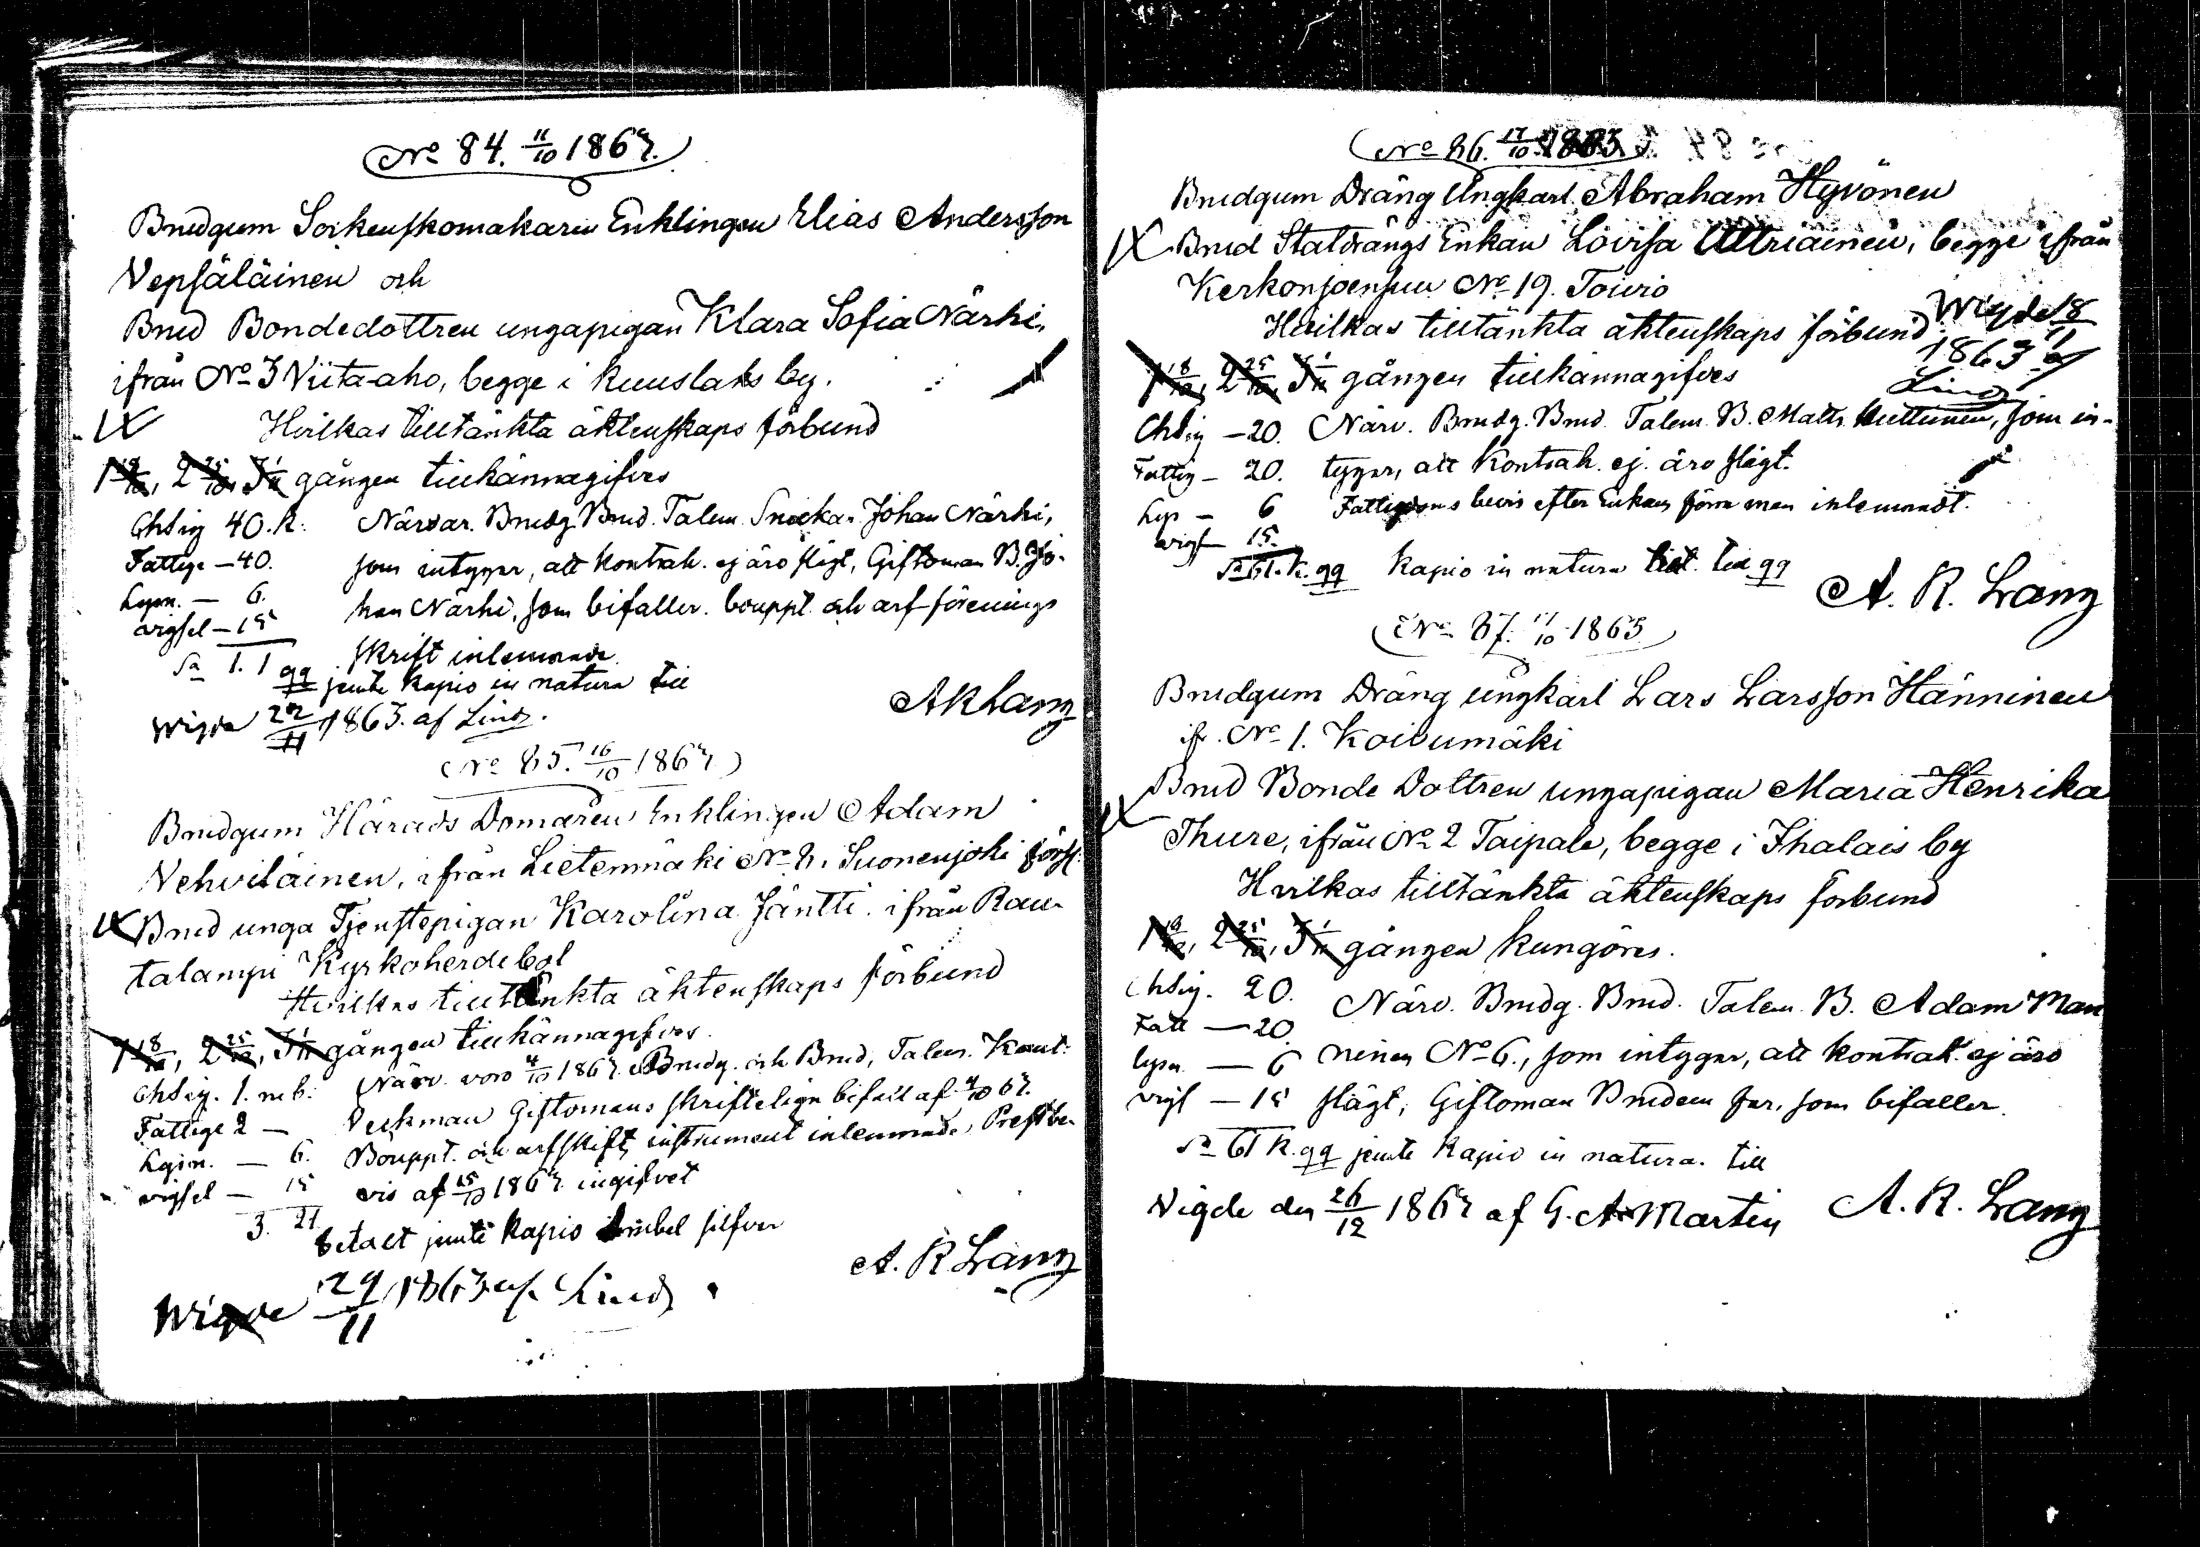 No 84. 11/10 1863.
Brudgum Sockenskomakaren Enklingen Elias Andersson
Vepsäläinen och
Brud Bondedottren ungapigan Klara Sofia Närhi,
ifrån No 3 Viita-aho, begge i Kuuslaks by.
Hvilkas tilltänkta äktenskaps förbund
1 18/10, 2 25/10, 3 1/11 gången tillkännagifves
Chsig 40. K. Närvar. Brudg. Brud. Talem. Snickar. Johan Närhi,
Fattige – 40. som intygar, att kontrah. ej äro slägt, Giftoman B. Jo-
Lysn. – 6. han Närhi, som bifaller. bouppt. och arf-förenings
vigsel – 15 skrift inlemnade.
Sa 1. 1 qq jemte Kapio in natura till
Wigde 22/11 1863. af Lind.
AR Lang
No 85. 16/10 1863
Brudgum Härads Domaren Enklingen Adam
Nehviläinen, ifrån Lietemmäki No 2. Suonenjoki förs.
Brud unga Tjenstepigan Karolina Jäntti ifrån Rau-
talampi Kyrkoherdebol
Hvilkas tilltänkta äktenskaps förbund
1 18/10, 2 25/10, 3 1/11 gången tillkännagifves.
Chsig. 1. rub. Närv. voro 4/10 1863 Brudg. och Brud, Talem. Kant.
Fattige 2 – Giftomans skriftelign bifall af 4/10 63.
Lysn. – 6. Bouppt. och arfskift instrument inlemnade, Prestbe-
vigsel – 15 vis af 15/10 1863 ingifvet
3. 21. betalt jemte Kapio 1 rubel silfver
A. R Lang
Wigde 29/11 1863 af Lind
No 86. 17/10 1863
Brudgum Dräng Ungkarl Abraham Hyvönen
Brud Statdrängs Enkan Lovisa Ultriainen, begge ifrån
Kerkonjoensuu No 19. Toivio
Hvilkas tilltänkta äktenskaps förbund
Wigde 18/11
1863 af
Lind
1 18/10, 2 25/10, 3 1/11 gången tillkännagifves
Chsig – 20. Närv. Brudg. Brud. Talem. B. Matts Huttunen, som in-
Fattig – 20. tygar, att kontrah. ej äro slägt.
Lys – 6 Fattigdoms bevis efter Enkans förra man inlemnadt.
vigs – 15.
Sa 61. K. qq Kapio in natura till qq
A. R. Lang
No 87. 17/10 1863
Brudgum Dräng ungkarl Lars Larsson Hänninen
ifr. No 1. Koivumäki
Brud Bonde Dottren ungapigan Maria Henrika
Thure, ifrån No 2 Taipale, begge i Jhalais by
Hvilkas tilltänkta äktenskaps förbund
1 18/10, 2 25/10, 3 1/11 gången kungöres.
Chsig. 20. Närv. Brudg. Brud. Talem. B. Adam Man
Fatt – 20. ninen No 6., som intygar, att kontrah. ej äro
lysn. – 6 slägt, Giftoman Brudens far, som bifaller.
vigs – 15
Sa 61 K. qq jemte Kapio in natura. till
Vigde den 26/12 1863 af G. A. Martin
A. R. Lang